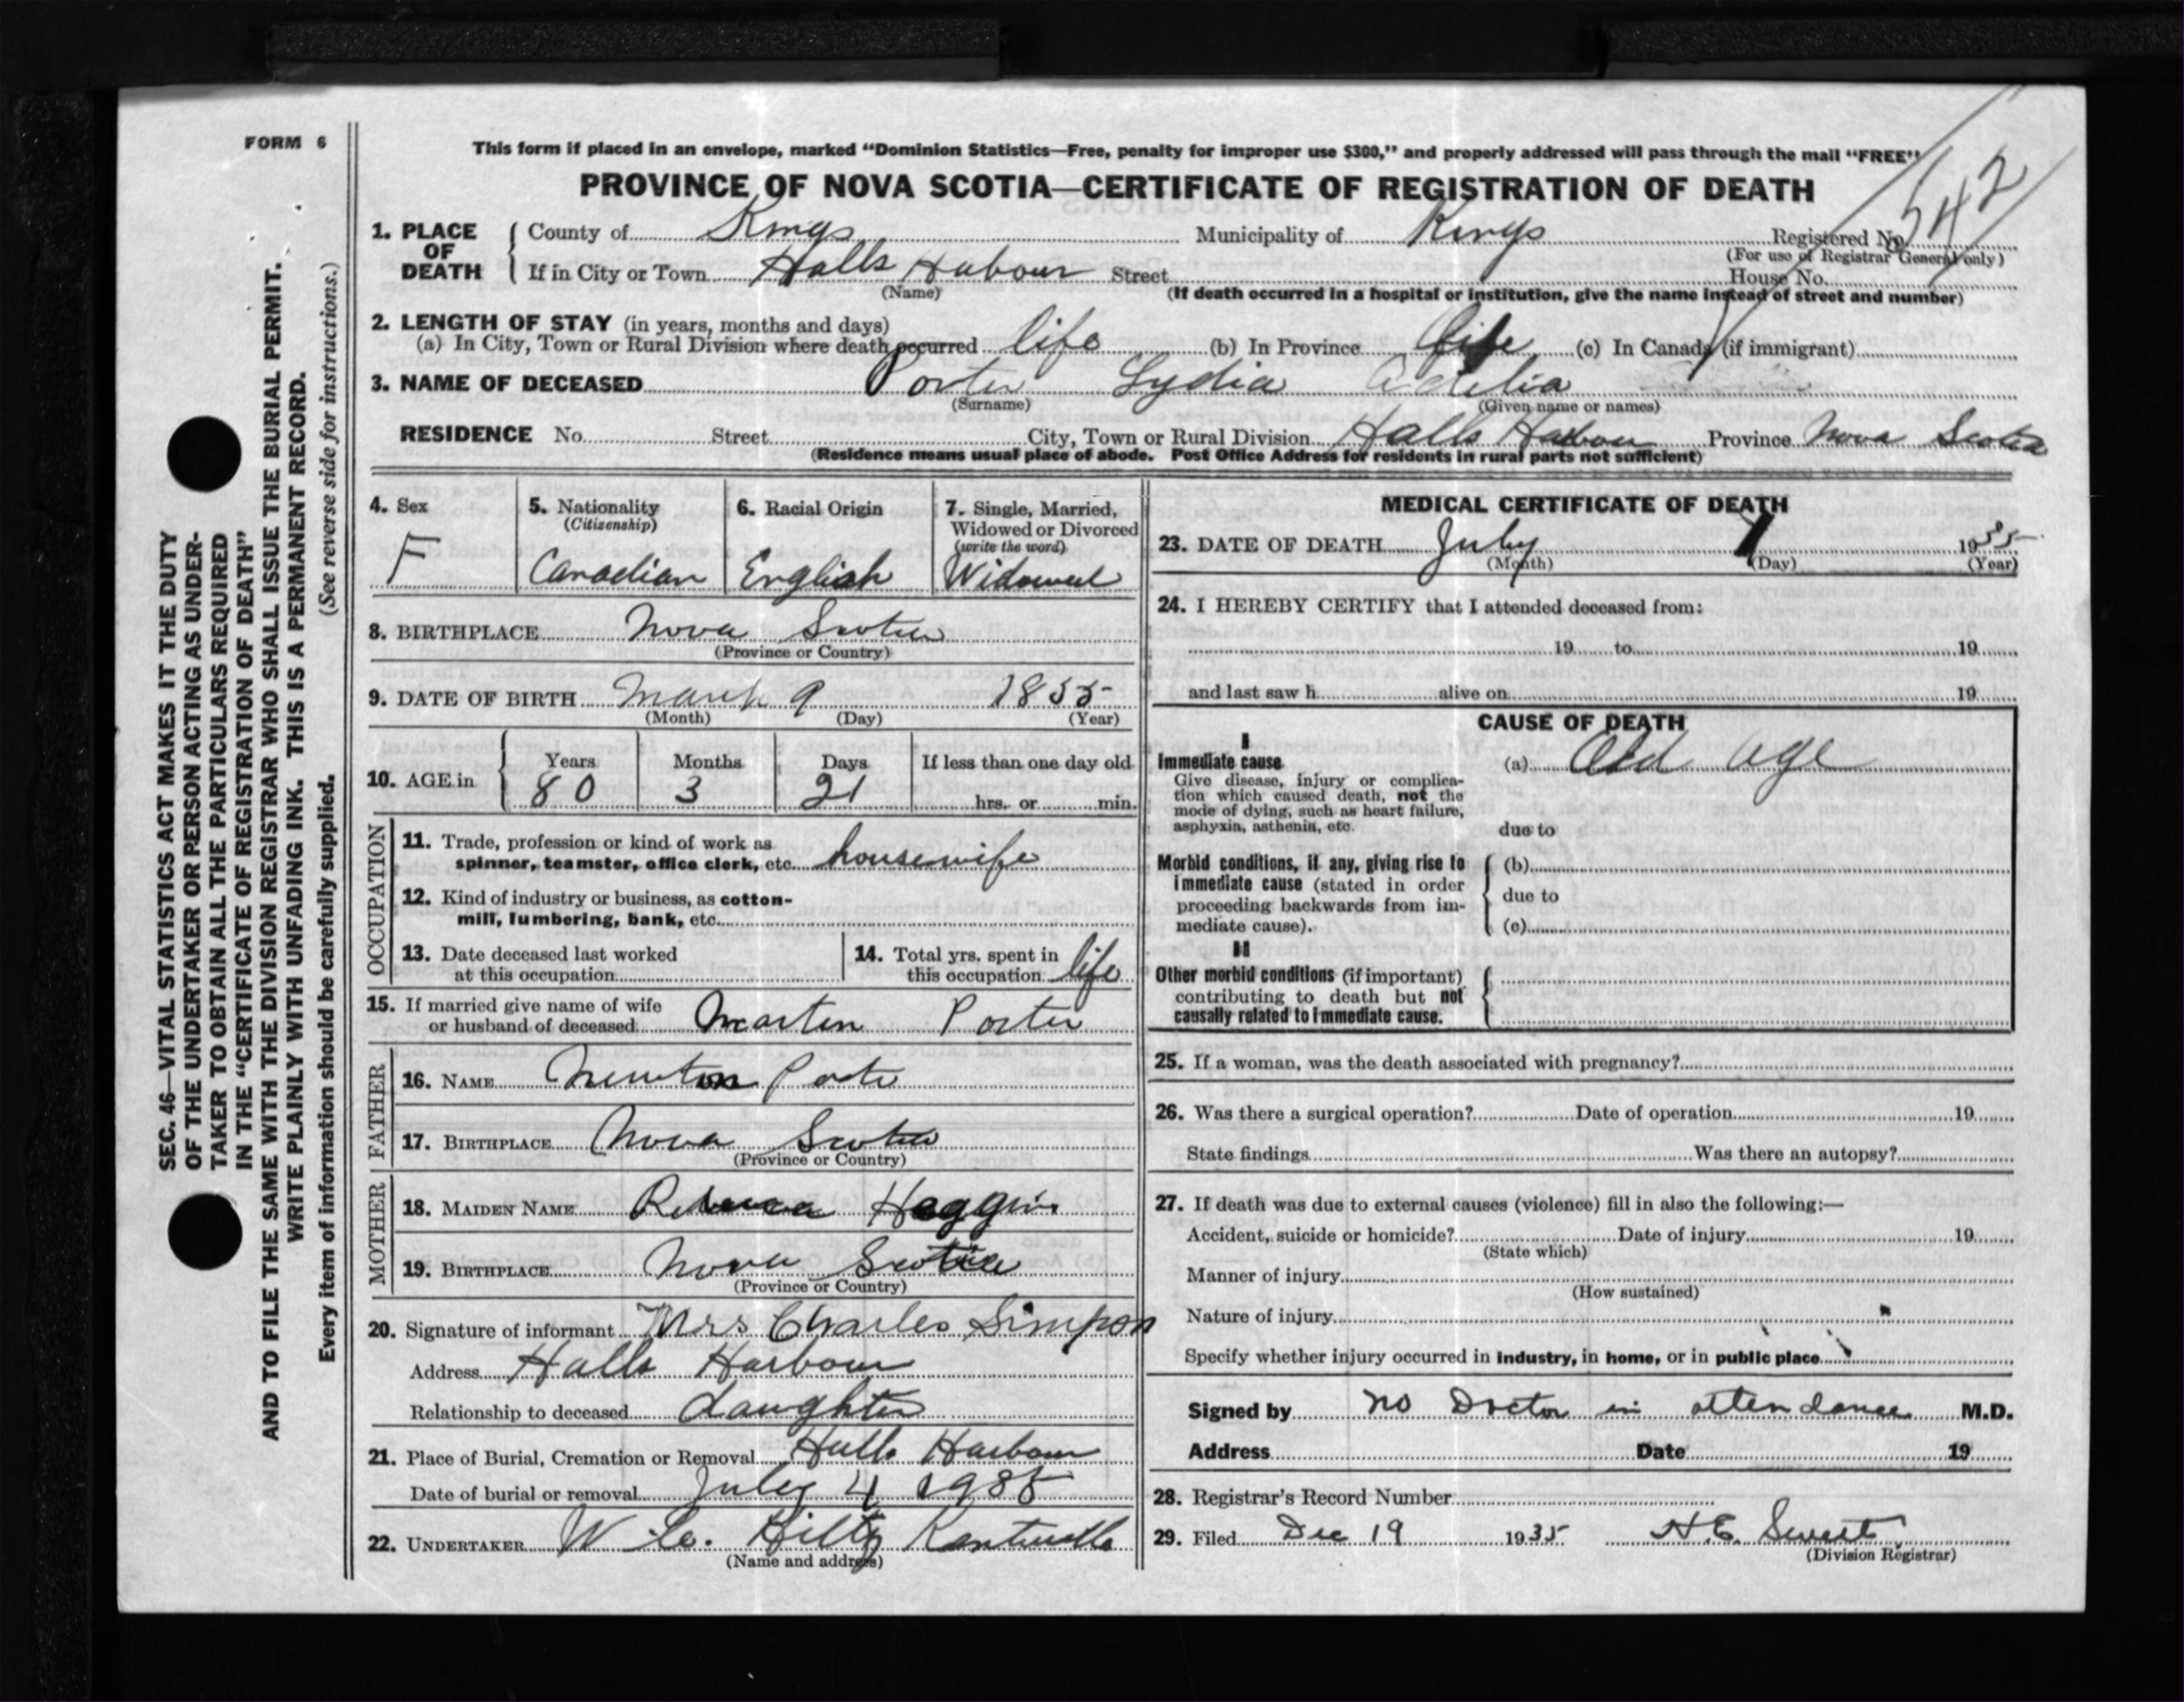 FORM 6
This form if placed in an envelope, marked “Dominion Statistics—Free, penalty for improper use $300,” and properly addressed will pass through the mail “FREE”
PROVINCE OF NOVA SCOTIA—CERTIFICATE OF REGISTRATION OF DEATH
542
1. PLACE OF DEATH
County of Kings Municipality of Kings Registered No.
(For use of Registrar General only)
If in City or Town Halls Habour Street House No.
(Name) (If death occurred in a hospital or institution, give the name instead of street and number)
2. LENGTH OF STAY (in years, months and days)
(a) In City, Town or Rural Division where death occurred life (b) In Province life (c) In Canada (if immigrant)
3. NAME OF DECEASED Porter Lydia Adelia
(Surname) (Given name or names)
RESIDENCE No. Street City, Town or Rural Division Halls Harbour Province Nova Scotia
(Residence means usual place of abode. Post Office Address for residents in rural parts not sufficient)
4. Sex
F
5. Nationality
(Citizenship)
Canadian
6. Racial Origin
English
7. Single, Married,
Widowed or Divorced
(write the word)
Widowed
8. BIRTHPLACE Nova Scotia
(Province or Country)
9. DATE OF BIRTH March 9 1855
(Month) (Day) (Year)
10. AGE in
Years Months Days If less than one day old
80 3 21 hrs. or min.
OCCUPATION
11. Trade, profession or kind of work as
spinner, teamster, office clerk, etc. housewife
12. Kind of industry or business, as cotton-
mill, lumbering, bank, etc.
13. Date deceased last worked
at this occupation
14. Total yrs. spent in
this occupation life
15. If married give name of wife
or husband of deceased Martin Porter
FATHER
16. NAME Newton Porter
17. BIRTHPLACE Nova Scotia
(Province or Country)
MOTHER
18. MAIDEN NAME Rebecca Hoggins
19. BIRTHPLACE Nova Scotia
(Province or Country)
20. Signature of informant Mrs Charles Simpson
Address Halls Harbour
Relationship to deceased daughter
21. Place of Burial, Cremation or Removal Halls Harbour
Date of burial or removal July 4 1935
22. UNDERTAKER W. Hiltz Kentville
(Name and address)
MEDICAL CERTIFICATE OF DEATH
23. DATE OF DEATH July 1 1935
(Month) (Day) (Year)
24. I HEREBY CERTIFY that I attended deceased from:
19 to 19
and last saw h alive on 19
CAUSE OF DEATH
I
Immediate cause (a) Old age
Give disease, injury or complica-
tion which caused death, not the
mode of dying, such as heart failure,
asphyxia, asthenia, etc.
due to
Morbid conditions, if any, giving rise to
immediate cause (stated in order
proceeding backwards from im-
mediate cause).
(b)
due to
(c)
II
Other morbid conditions (if important)
contributing to death but not
causally related to immediate cause.
25. If a woman, was the death associated with pregnancy?
26. Was there a surgical operation? Date of operation 19
State findings Was there an autopsy?
27. If death was due to external causes (violence) fill in also the following:—
Accident, suicide or homicide? Date of injury 19
(State which)
Manner of injury
(How sustained)
Nature of injury
Specify whether injury occurred in industry, in home, or in public place
Signed by no Doctor in attendance M.D.
Address Date 19
28. Registrar’s Record Number
29. Filed Dec 19 1935 H.E. Sweet
(Division Registrar)
SEC. 46—VITAL STATISTICS ACT MAKES IT THE DUTY
OF THE UNDERTAKER OR PERSON ACTING AS UNDER-
TAKER TO OBTAIN ALL THE PARTICULARS REQUIRED
IN THE “CERTIFICATE OF REGISTRATION OF DEATH”
AND TO FILE THE SAME WITH THE DIVISION REGISTRAR WHO SHALL ISSUE THE BURIAL PERMIT.
WRITE PLAINLY WITH UNFADING INK. THIS IS A PERMANENT RECORD.
Every item of information should be carefully supplied. (See reverse side for instructions.)